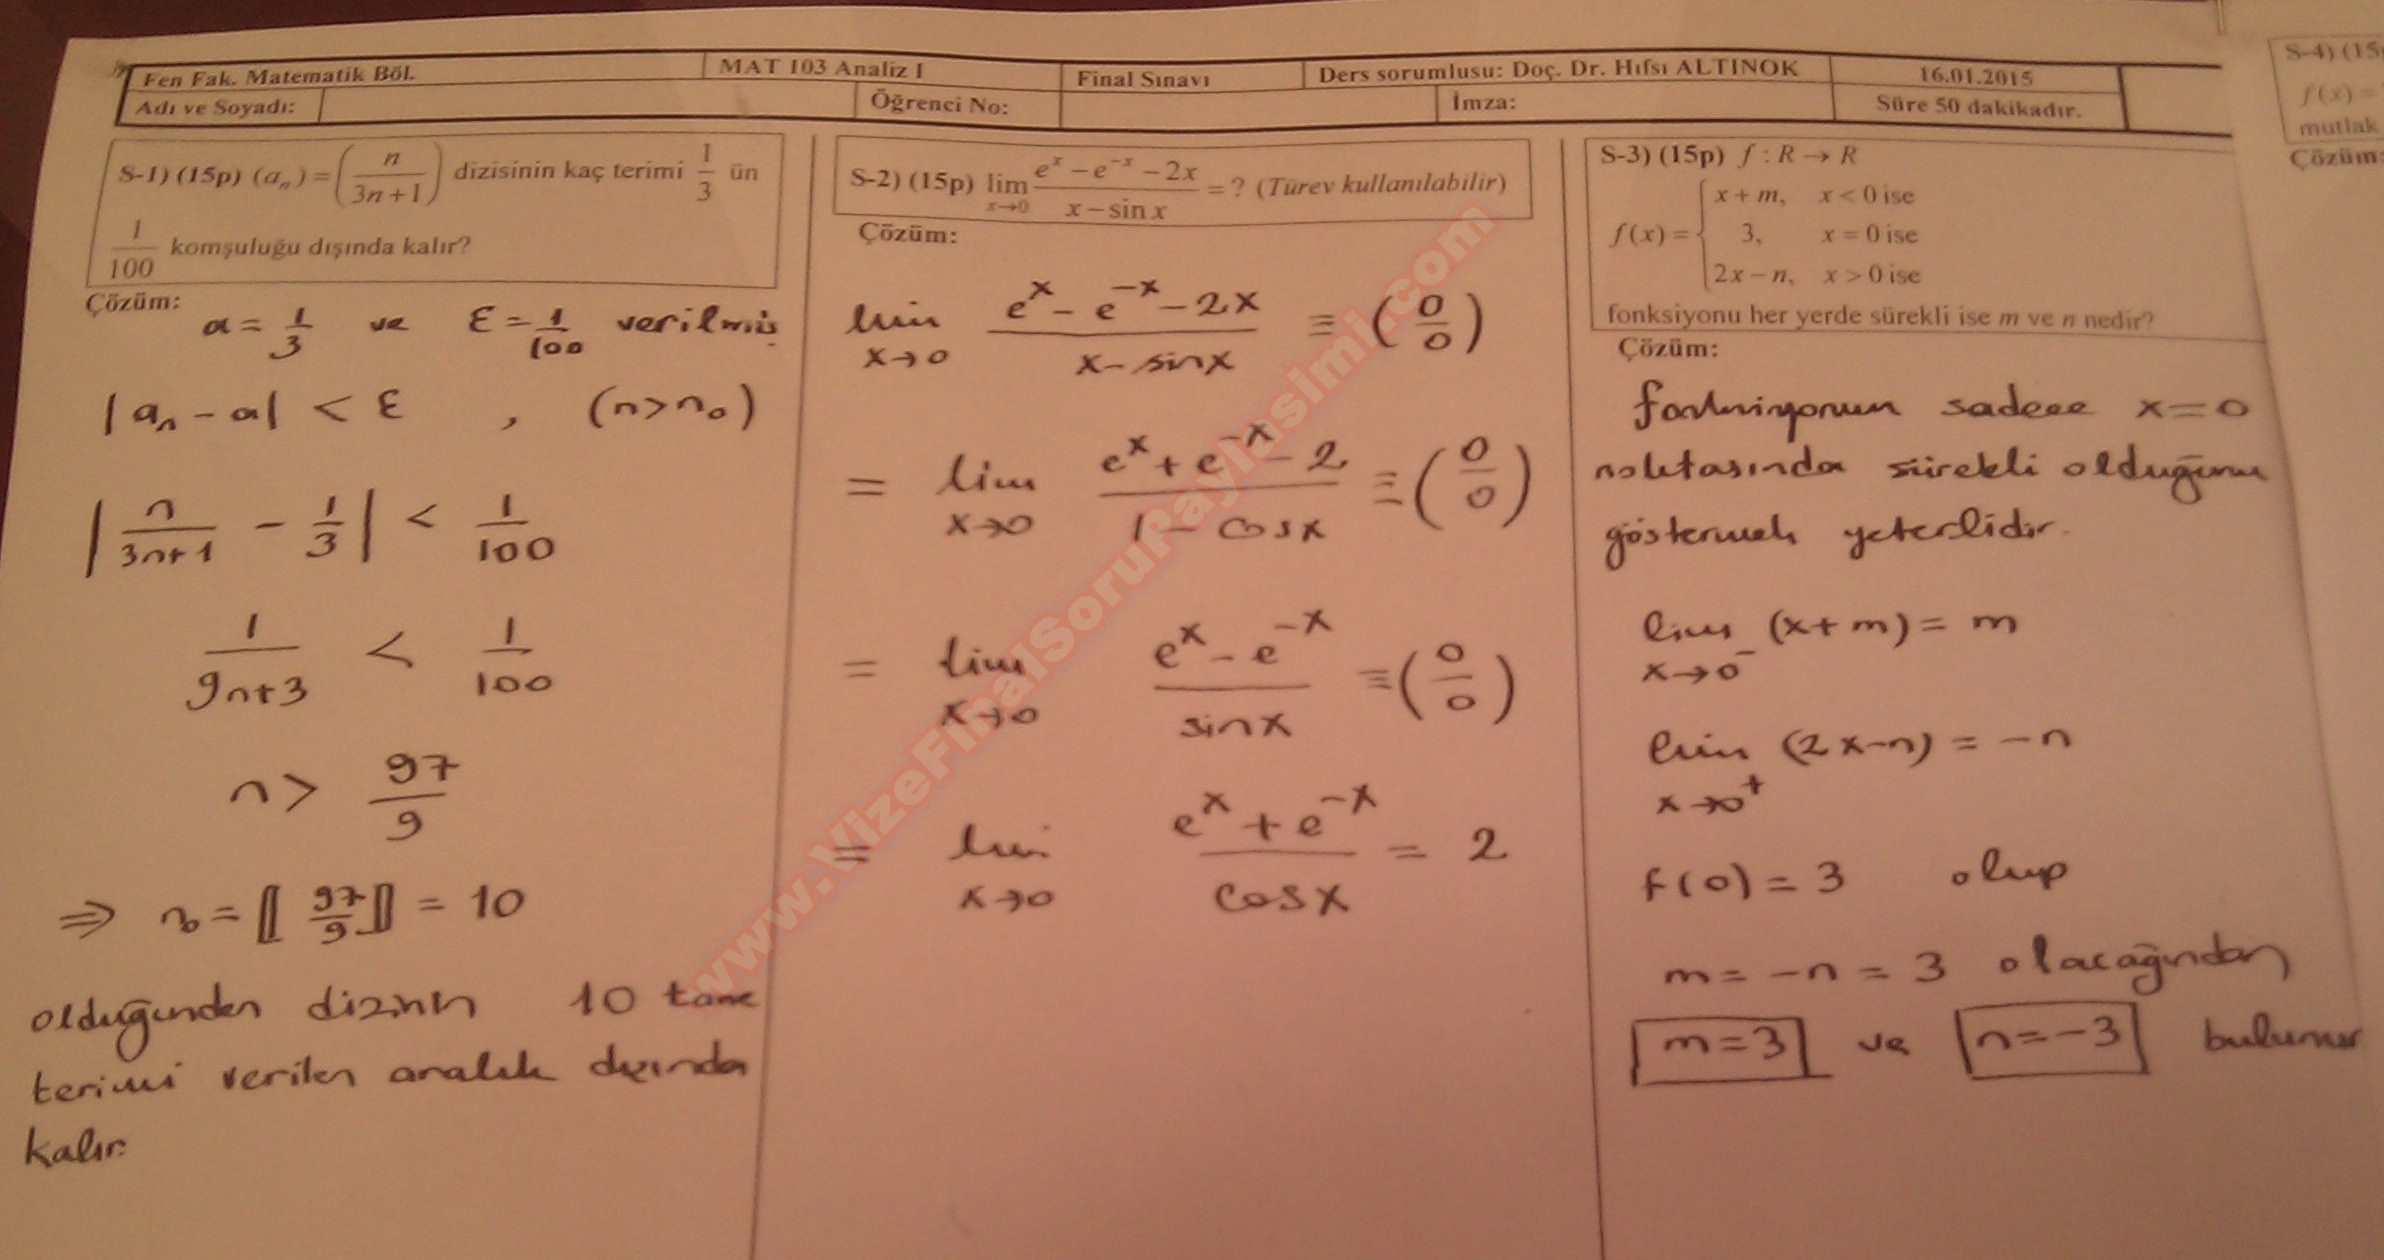 Fen Fak. Matematik Böl. MAT 103 Analiz I Final Sınavı Ders sorumlusu: Doç. Dr. Hıfsı ALTINOK 16.01.2015
Adı ve Soyadı: Öğrenci No: İmza: Süre 50 dakikadır.
S-1) (15p) (aₙ) = (n/(3n+1)) dizisinin kaç terimi 1/3 ün
1/100 komşuluğu dışında kalır?
Çözüm:
a = 1/3 ve ε = 1/100 verilmiş
|aₙ - a| < ε , (n > n₀)
|n/(3n+1) - 1/3| < 1/100
1/(9n+3) < 1/100
n > 97/9
⇒ n₀ = ⟦97/9⟧ = 10
olduğundan dizinin 10 tane
terimi verilen aralık dışında
kalır.
S-2) (15p) lim x→0 (eˣ - e⁻ˣ - 2x)/(x - sin x) = ? (Türev kullanılabilir)
Çözüm:
lim x→0 (eˣ - e⁻ˣ - 2x)/(x - sinx) ≡ (0/0)
= lim x→0 (eˣ + e⁻ˣ - 2)/(1 - cosx) ≡ (0/0)
= lim x→0 (eˣ - e⁻ˣ)/sinx ≡ (0/0)
= lim x→0 (eˣ + e⁻ˣ)/cosx = 2
S-3) (15p) f : R → R
f(x) = { x + m, x < 0 ise
3, x = 0 ise
2x - n, x > 0 ise
fonksiyonu her yerde sürekli ise m ve n nedir?
Çözüm:
fonksiyonun sadece x = 0
noktasında sürekli olduğunu
göstermek yeterlidir.
lim x→0⁻ (x + m) = m
lim x→0⁺ (2x - n) = -n
f(0) = 3 olup
m = -n = 3 olacağından
m = 3 ve n = -3 bulunur
S-4) (15p
f(x) =
mutlak
Çözüm:
www.VizeFinalSoruPaylasimi.com